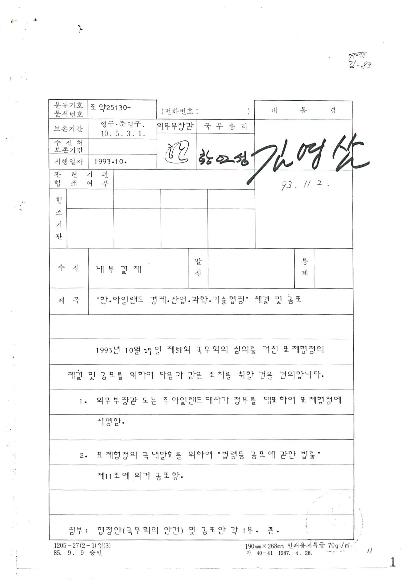 분류기호
문서번호
조약25130-
(전화번호: )
대 통 령
보존기간
영구·준영구.
10. 5. 3. 1.
외무부장관
국 무 총 리
수 신 처
보존기간
시행일자
1993.10.
김영삼
93. 11. 2.
협
조
기
관
수 신
내부결재
발
신
통
제
제 목
"한·아일랜드 경제,산업,과학,기술협정" 체결 및 공포
1993년 10월 일 제 회 국무회의 심의를 거친 표제협정의
체결 및 공포를 위하여 다음과 같은 조치를 취할 것을 건의합니다.
1. 외무부장관 또는 주아일랜드대사가 정부를 대표하여 표제협정에
서명함.
2. 표제협정의 국내발효를 위하여 "법령등 공포에 관한 법률"
제11조에 의거 공포함.
첨부: 협정안(국무회의 안건) 및 공포안 각 1부. 끝.
1205-27(2-1)일(3)
85. 9. 9 승인
190mm×268mm 인쇄용지특급 70g/㎡
가 40-41 1987. 4. 28.
1